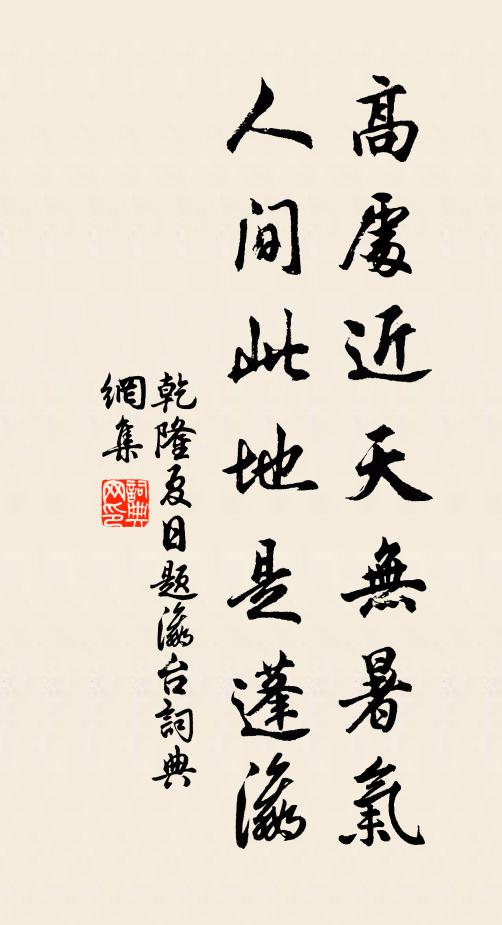 高處近天無暑氣
人间此地是蓬瀛
乾隆夏日题瀛台詞典
網集
詞典
网印